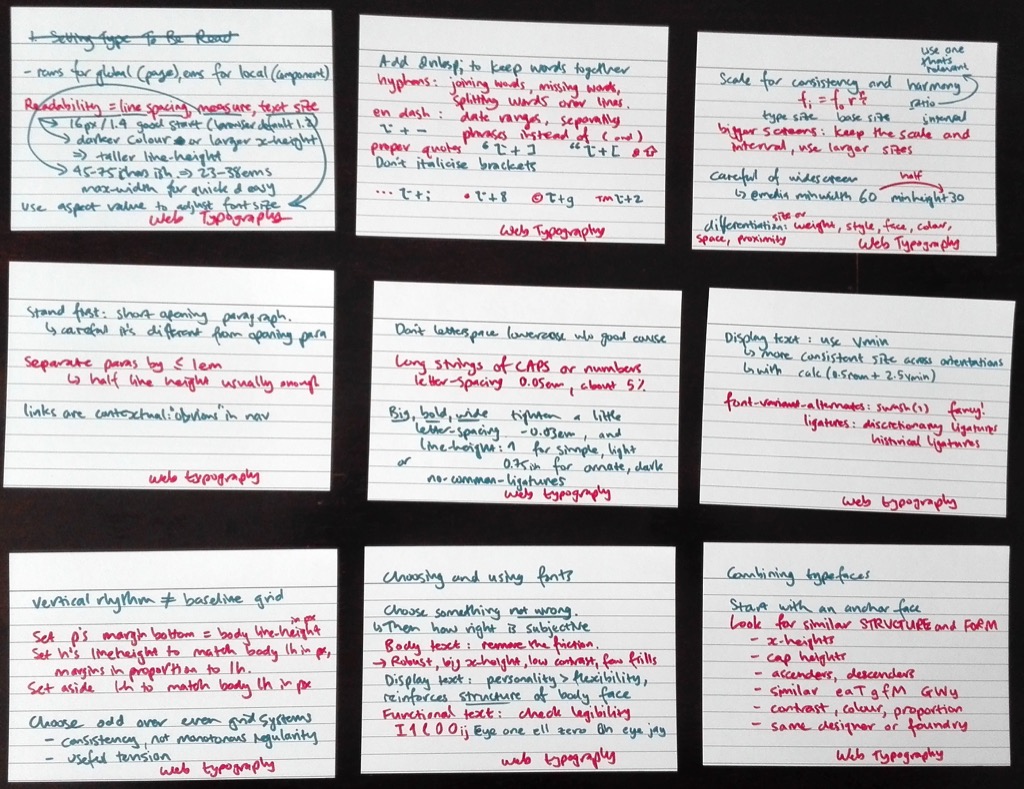 1 Setting Type To Be Read
- rems for global (page), ems for local (component)
Readability = line spacing, measure, text size
↳ 16px / 1.4 good start (browser default 1.2)
↳ darker colour or larger x-height
⇒ taller line-height
↳ 45-75 chars ish ⇒ 23-38ems
max-width for quick & easy
use aspect value to adjust font size
Web Typography
Add &nbsp; to keep words together
hyphens: joining words, missing words,
splitting words over lines.
en dash: date ranges, separally
⌥ + - phrases instead of (and)
proper quotes “ ⌥ + ] “ ⌥ + [ & ⇧
Don't italicise brackets
... ⌥ + ; • ⌥ + 8 © ⌥ + g ™ ⌥ + 2
Web Typography
use one
that's
relevant
Scale for consistency and harmony
ratio
type size base size interval
bigger screens: keep the scale and
interval, use larger sizes
careful of widescreen half
↳ @media minwidth 60 minheight 30
size or
differentiation: weight, style, face, colour,
space, proximity
Web Typography
Stand first: short opening paragraph.
↳ careful it's different from opening para
Separate paras by ≤ 1em
↳ half line height usually enough
links are contextual: "obvious" in nav
web typography
Don't letterspace lowercase w/o good cause
Long strings of CAPS or numbers
letter-spacing 0.05em, about 5%
Big, bold, wide tighten a little
letter-spacing -0.03em, and
line-height: 1 for simple, light
or 0.75 in for ornate, dark
no-common-ligatures
web typography
Display text: use vmin
↳ more consistent size across orientations
↳ with calc (0.5rem + 2.5vmin)
font-variant-alternates: swash(1) fancy!
ligatures: discretionary ligatures
historical ligatures
web typography
vertical rhythm ≠ baseline grid
in px
Set p's margin bottom = body line-height
Set h's lineheight to match body lh in px,
margins in proportion to lh.
Set aside lh to match body lh in px
Choose odd over even grid systems
- consistency, not monotonous regularity
- useful tension
web typography
Choosing and using fonts
Choose something not wrong.
↳ Then how right is subjective
Body text: remove the friction.
→ Robust, big x-height, low contrast, few frills
Display text: personality > flexibility,
reinforces structure of body face
Functional text: check legibility
I 1 l 0 O i j Eye one ell zero Oh eye jay
web typography
Combining typefaces
Start with an anchor face
Look for similar STRUCTURE and FORM
- x-heights
- cap heights
- ascenders, descenders
- similar eaTgfM GWy
- contrast, colour, proportion
- same designer or foundry
Web Typography